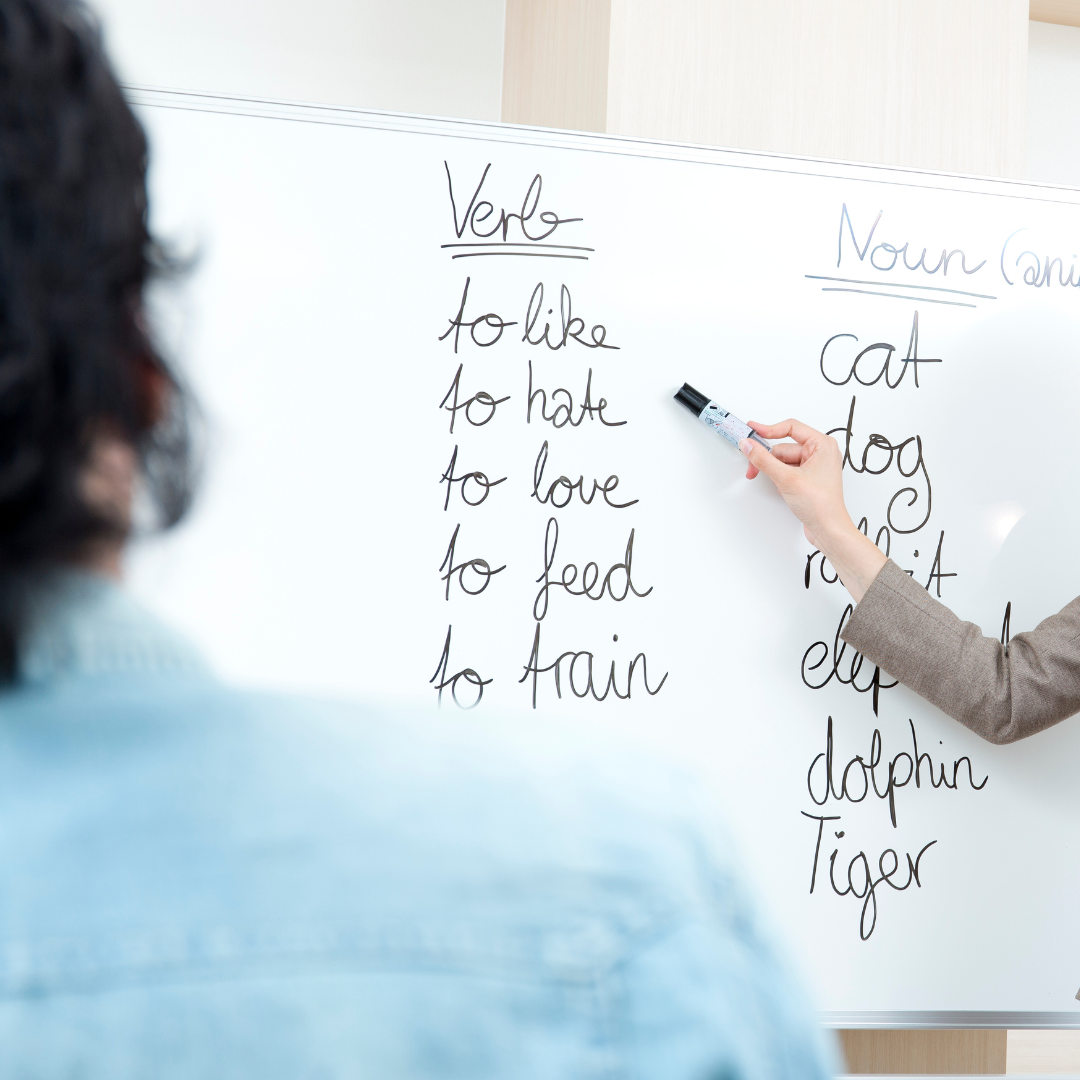 Verb
to like
to hate
to love
to feed
to train
Noun
cat
dog
dolphin
Tiger